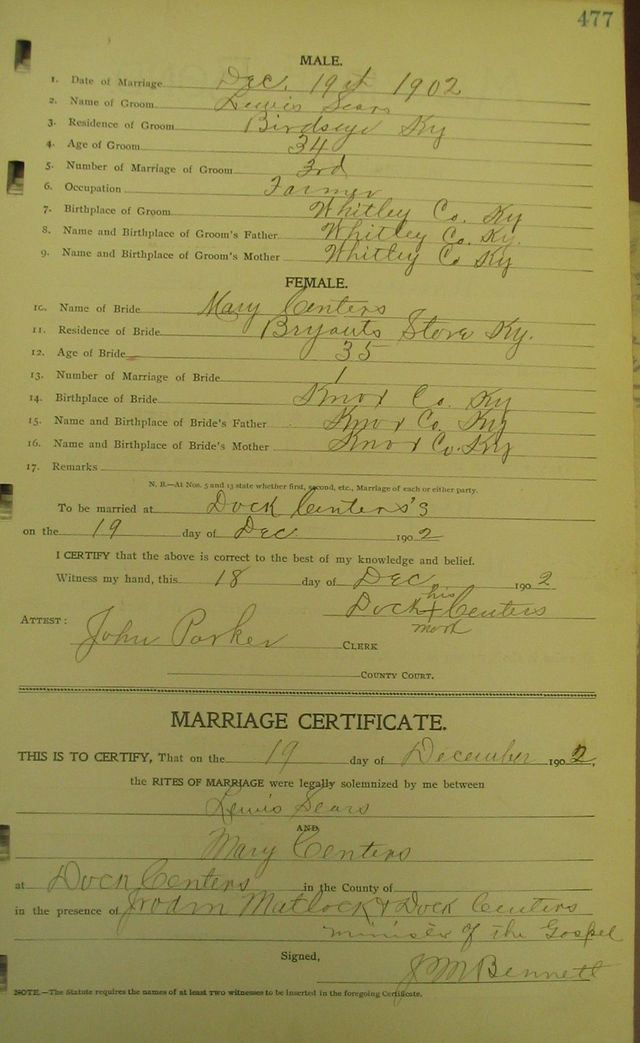 477
MALE.
1. Date of Marriage Dec. 19th 1902
2. Name of Groom Lewis Sears
3. Residence of Groom Birdseye Ky
4. Age of Groom 34
5. Number of Marriage of Groom 3rd
6. Occupation Farmer
7. Birthplace of Groom Whitley Co. Ky
8. Name and Birthplace of Groom's Father Whitley Co. Ky.
9. Name and Birthplace of Groom's Mother Whitley Co Ky
FEMALE.
10. Name of Bride Mary Centers
11. Residence of Bride Bryants Store Ky.
12. Age of Bride 35
13. Number of Marriage of Bride 1
14. Birthplace of Bride Knox Co. Ky
15. Name and Birthplace of Bride's Father Knox Co. Ky
16. Name and Birthplace of Bride's Mother Knox Co. Ky
17. Remarks
N. B.—At Nos. 5 and 13 state whether first, second, etc., Marriage of each or either party.
To be married at Dock Centers's
on the 19 day of Dec 1902
I CERTIFY that the above is correct to the best of my knowledge and belief.
Witness my hand, this 18 day of Dec 1902
his
Dock + Centers
mark
ATTEST: John Parker CLERK
COUNTY COURT.
MARRIAGE CERTIFICATE.
THIS IS TO CERTIFY, That on the 19 day of December 1902,
the RITES OF MARRIAGE were legally solemnized by me between
Lewis Sears
AND
Mary Centers
at Dock Centers in the County of
in the presence of Matlock & Dock Centers
minister of the Gospel
Signed, J M Bennett
NOTE.—The Statute requires the names of at least two witnesses to be inserted in the foregoing Certificate.